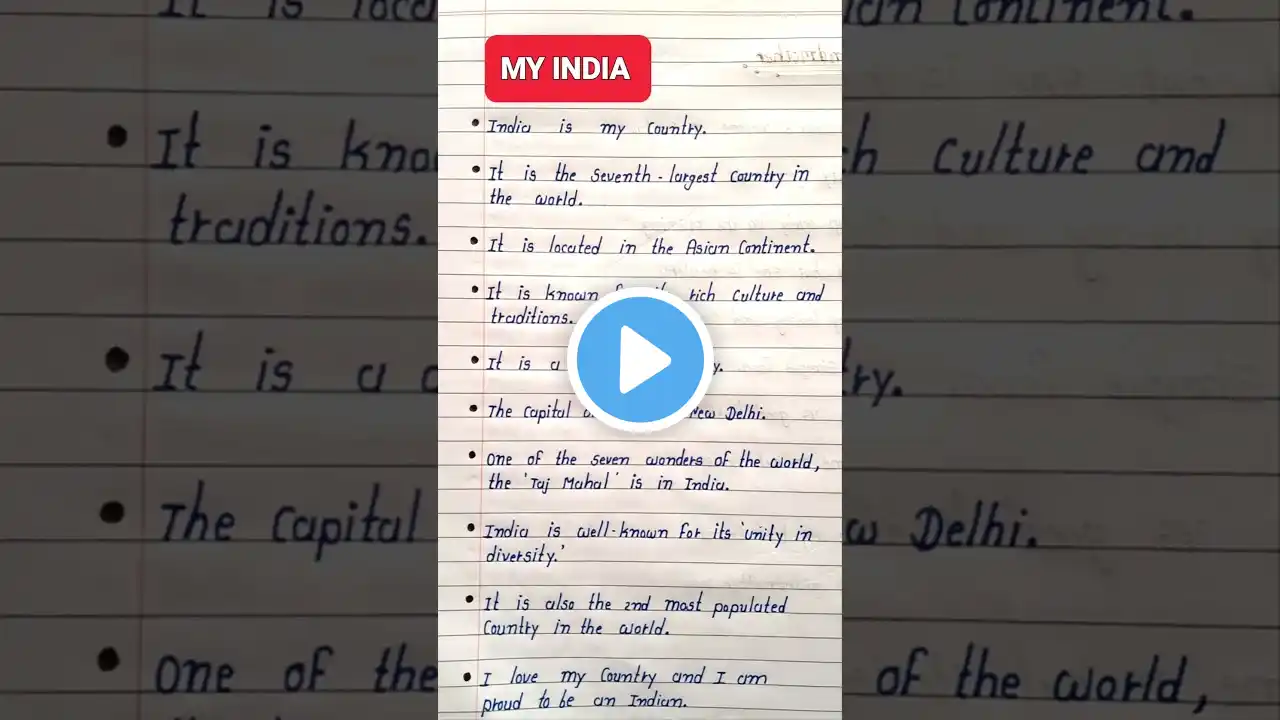 MY INDIA
• India is my Country.
• It is the Seventh-largest Country in
the world.
• It is located in the Asian Continent.
• It is known rich Culture and
traditions.
• It is a
• The Capital New Delhi.
• One of the seven wonders of the world,
the 'Taj Mahal' is in India.
• India is well-known for its 'unity in
diversity.'
• It is also the 2nd most populated
Country in the world.
• I love my Country and I am
proud to be an Indian.
It is
Continent.
• It is
Culture and
traditions.
• It is a
• The Capital
Delhi.
• One of the
of the world,